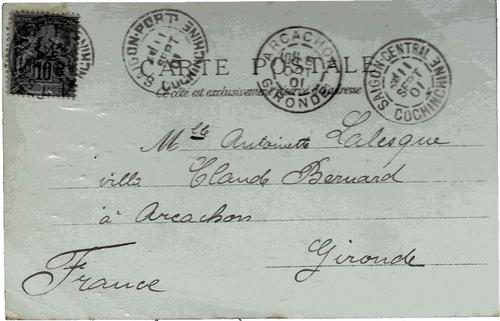 10
SAIGON-PORT
11
SEPT
01
COCHINCHINE
ARCACHON
01
GIRONDE
SAIGON-CENTRAL
11
SEPT
01
COCHINCHINE
CARTE POSTALE
Ce côté est exclusivement réservé à l'adresse
Mlle Antoinette Lalesque
villa Claude Bernard
à Arcachon
Gironde
France